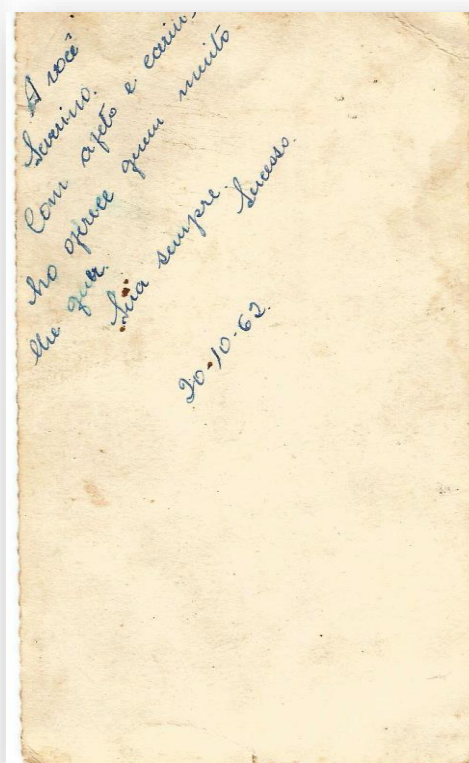 A você
Severino.
Com afeto e cari-
nho oferece quem muito
lhe quer.
Sua sempre
Sucesso.
20-10-62.